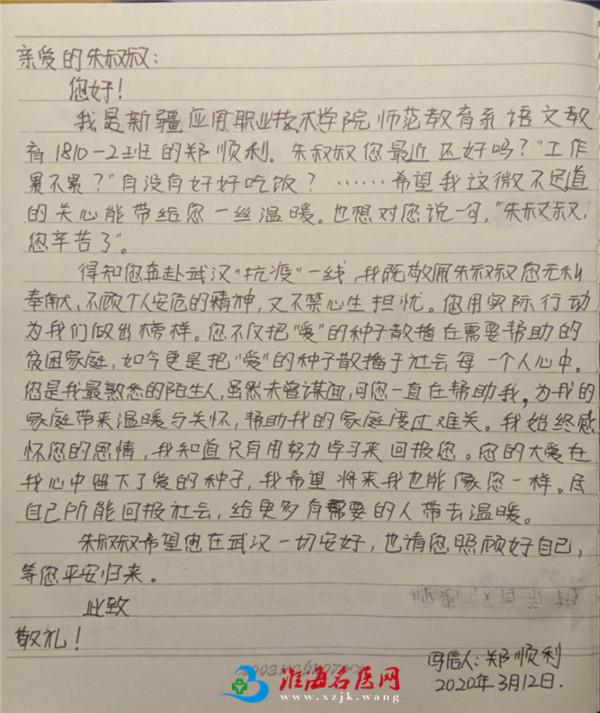 亲爱的朱叔叔:
您好!
我是新疆应用职业技术学院师范教育系语文教
育1810-2班的郑顺利。朱叔叔您最近还好吗?"工作
累不累?"有没有好好吃饭?……希望我这微不足道
的关心能带给您一丝温暖。也想对您说一句,"朱叔叔,
您辛苦了"。
得知您奔赴武汉"抗疫"一线,我既敬佩朱叔叔您无私
奉献、不顾个人安危的精神,又不禁心生担忧。您用实际行动
为我们做出榜样。您不仅把"爱"的种子散播在需要帮助的
贫困家庭,如今更是把"爱"的种子散播于社会每一个人心中。
您是我最熟悉的陌生人,虽然未曾谋面,可您一直在帮助我,为我的
家庭带来温暖与关怀,帮助我的家庭度过难关。我始终感
怀您的恩情,我知道只有用努力学习来回报您。您的大爱在
我心中留下了爱的种子,我希望将来我也能像您一样。尽
自己所能回报社会,给更多有需要的人带去温暖。
朱叔叔希望您在武汉一切安好,也请您照顾好自己,
等您平安归来。
此致
敬礼!
写信人:郑顺利
2020年3月12日.
淮海名医网
www.xzjk.wang